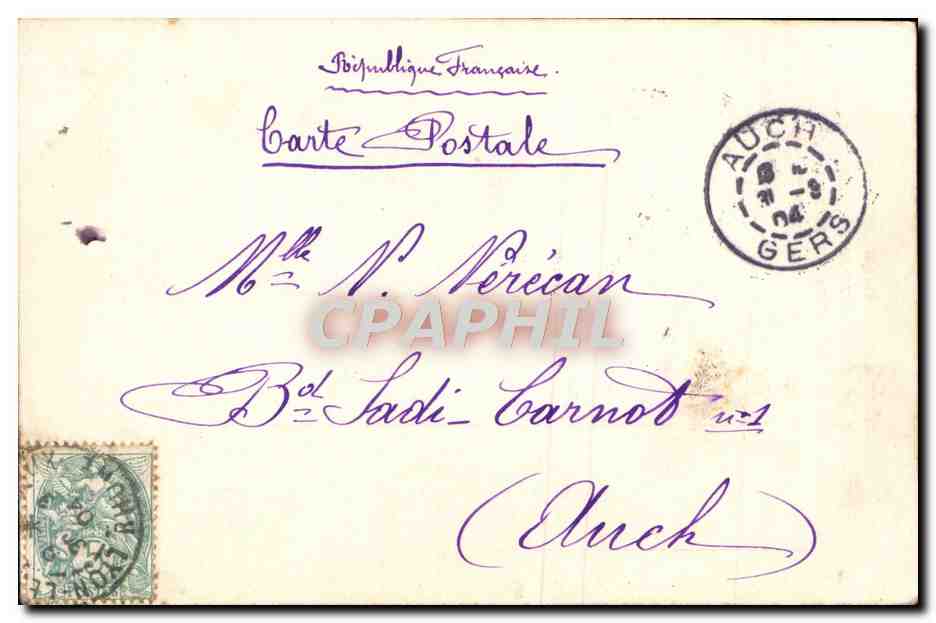 République Française.
Carte Postale
AUCH
31 - 8
04
GERS
Mlle V. Vérécan
CPAPHIL
Bd Sadi-Carnot n=1
(Auch)
LYON
RHONE